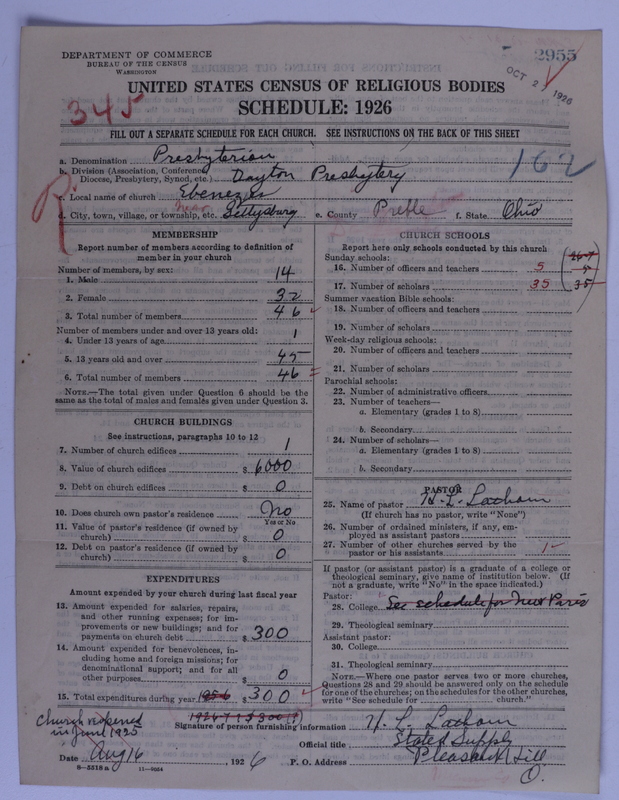 DEPARTMENT OF COMMERCE
BUREAU OF THE CENSUS
WASHINGTON
2955
OCT 2 1926
UNITED STATES CENSUS OF RELIGIOUS BODIES
345
SCHEDULE: 1926
FILL OUT A SEPARATE SCHEDULE FOR EACH CHURCH. SEE INSTRUCTIONS ON THE BACK OF THIS SHEET
162
a. Denomination Presbyterian
b. Division (Association, Conference, Diocese, Presbytery, Synod, etc.) Dayton Presbytery
c. Local name of church Ebenezer
R
d. City, town, village, or township, etc. near Gettysburg e. County Preble f. State Ohio
MEMBERSHIP
Report number of members according to definition of
member in your church
Number of members, by sex:
1. Male 14
2. Female 32
3. Total number of members 46
Number of members under and over 13 years old:
4. Under 13 years of age 1
5. 13 years old and over 45
6. Total number of members 46
NOTE.—The total given under Question 6 should be
same as the total of males and females given under Question 3.
CHURCH BUILDINGS
See instructions, paragraphs 10 to 12
7. Number of church edifices 1
8. Value of church edifices $ 6000
9. Debt on church edifices $ 0
10. Does church own pastor's residence No
Yes or No
11. Value of pastor's residence (if owned by
church) $ 0
12. Debt on pastor's residence (if owned by
church) $ 0
EXPENDITURES
Amount expended by church during last fiscal year
13. Amount expended for salaries, repairs,
and other running expenses; for im-
provements or new buildings; and for
payments on church debt $ 300
14. Amount expended for benevolences, in-
cluding home and foreign missions; for
denominational support; and for all
other purposes $ 0
15. Total expenditures during year $ 300
CHURCH SCHOOLS
Report here only schools conducted by this church
Sunday schools:
16. Number of officers and teachers 5
17. Number of scholars 35 35
Summer vacation Bible schools:
18. Number of officers and teachers
19. Number of scholars
Week-day religious schools:
20. Number of officers and teachers
21. Number of scholars
Parochial schools:
22. Number of administrative officers
23. Number of teachers—
a. Elementary (grades 1 to 8)
b. Secondary
24. Number of scholars—
a. Elementary (grades 1 to 8)
b. Secondary
PASTOR
25. Name of pastor H. L. Latham
(If church has no pastor, write "None")
26. Number of ordained ministers, if any, em-
ployed as assistant pastors
27. Number of other churches served by the
pastor or his assistants 1
If pastor (or assistant pastor) is a graduate of a college or
theological seminary, give name of institution below. (If
not a graduate, write "No" in the space indicated.)
Pastor:
28. College See schedule for New Paris
29. Theological seminary
Assistant pastor:
30. College
31. Theological seminary
NOTE.—Where one pastor serves two or more churches,
Questions 28 and 29 should be answered only on the schedule
for one of the churches; on the schedules for the other churches,
write "See schedule for church."
Church reopened
in June 1925
Signature of person furnishing information H. L. Latham
Official title Stated Supply
Date Aug 16, 1926 P. O. Address Pleasant Hill
O.
8—5518 a 11—9054